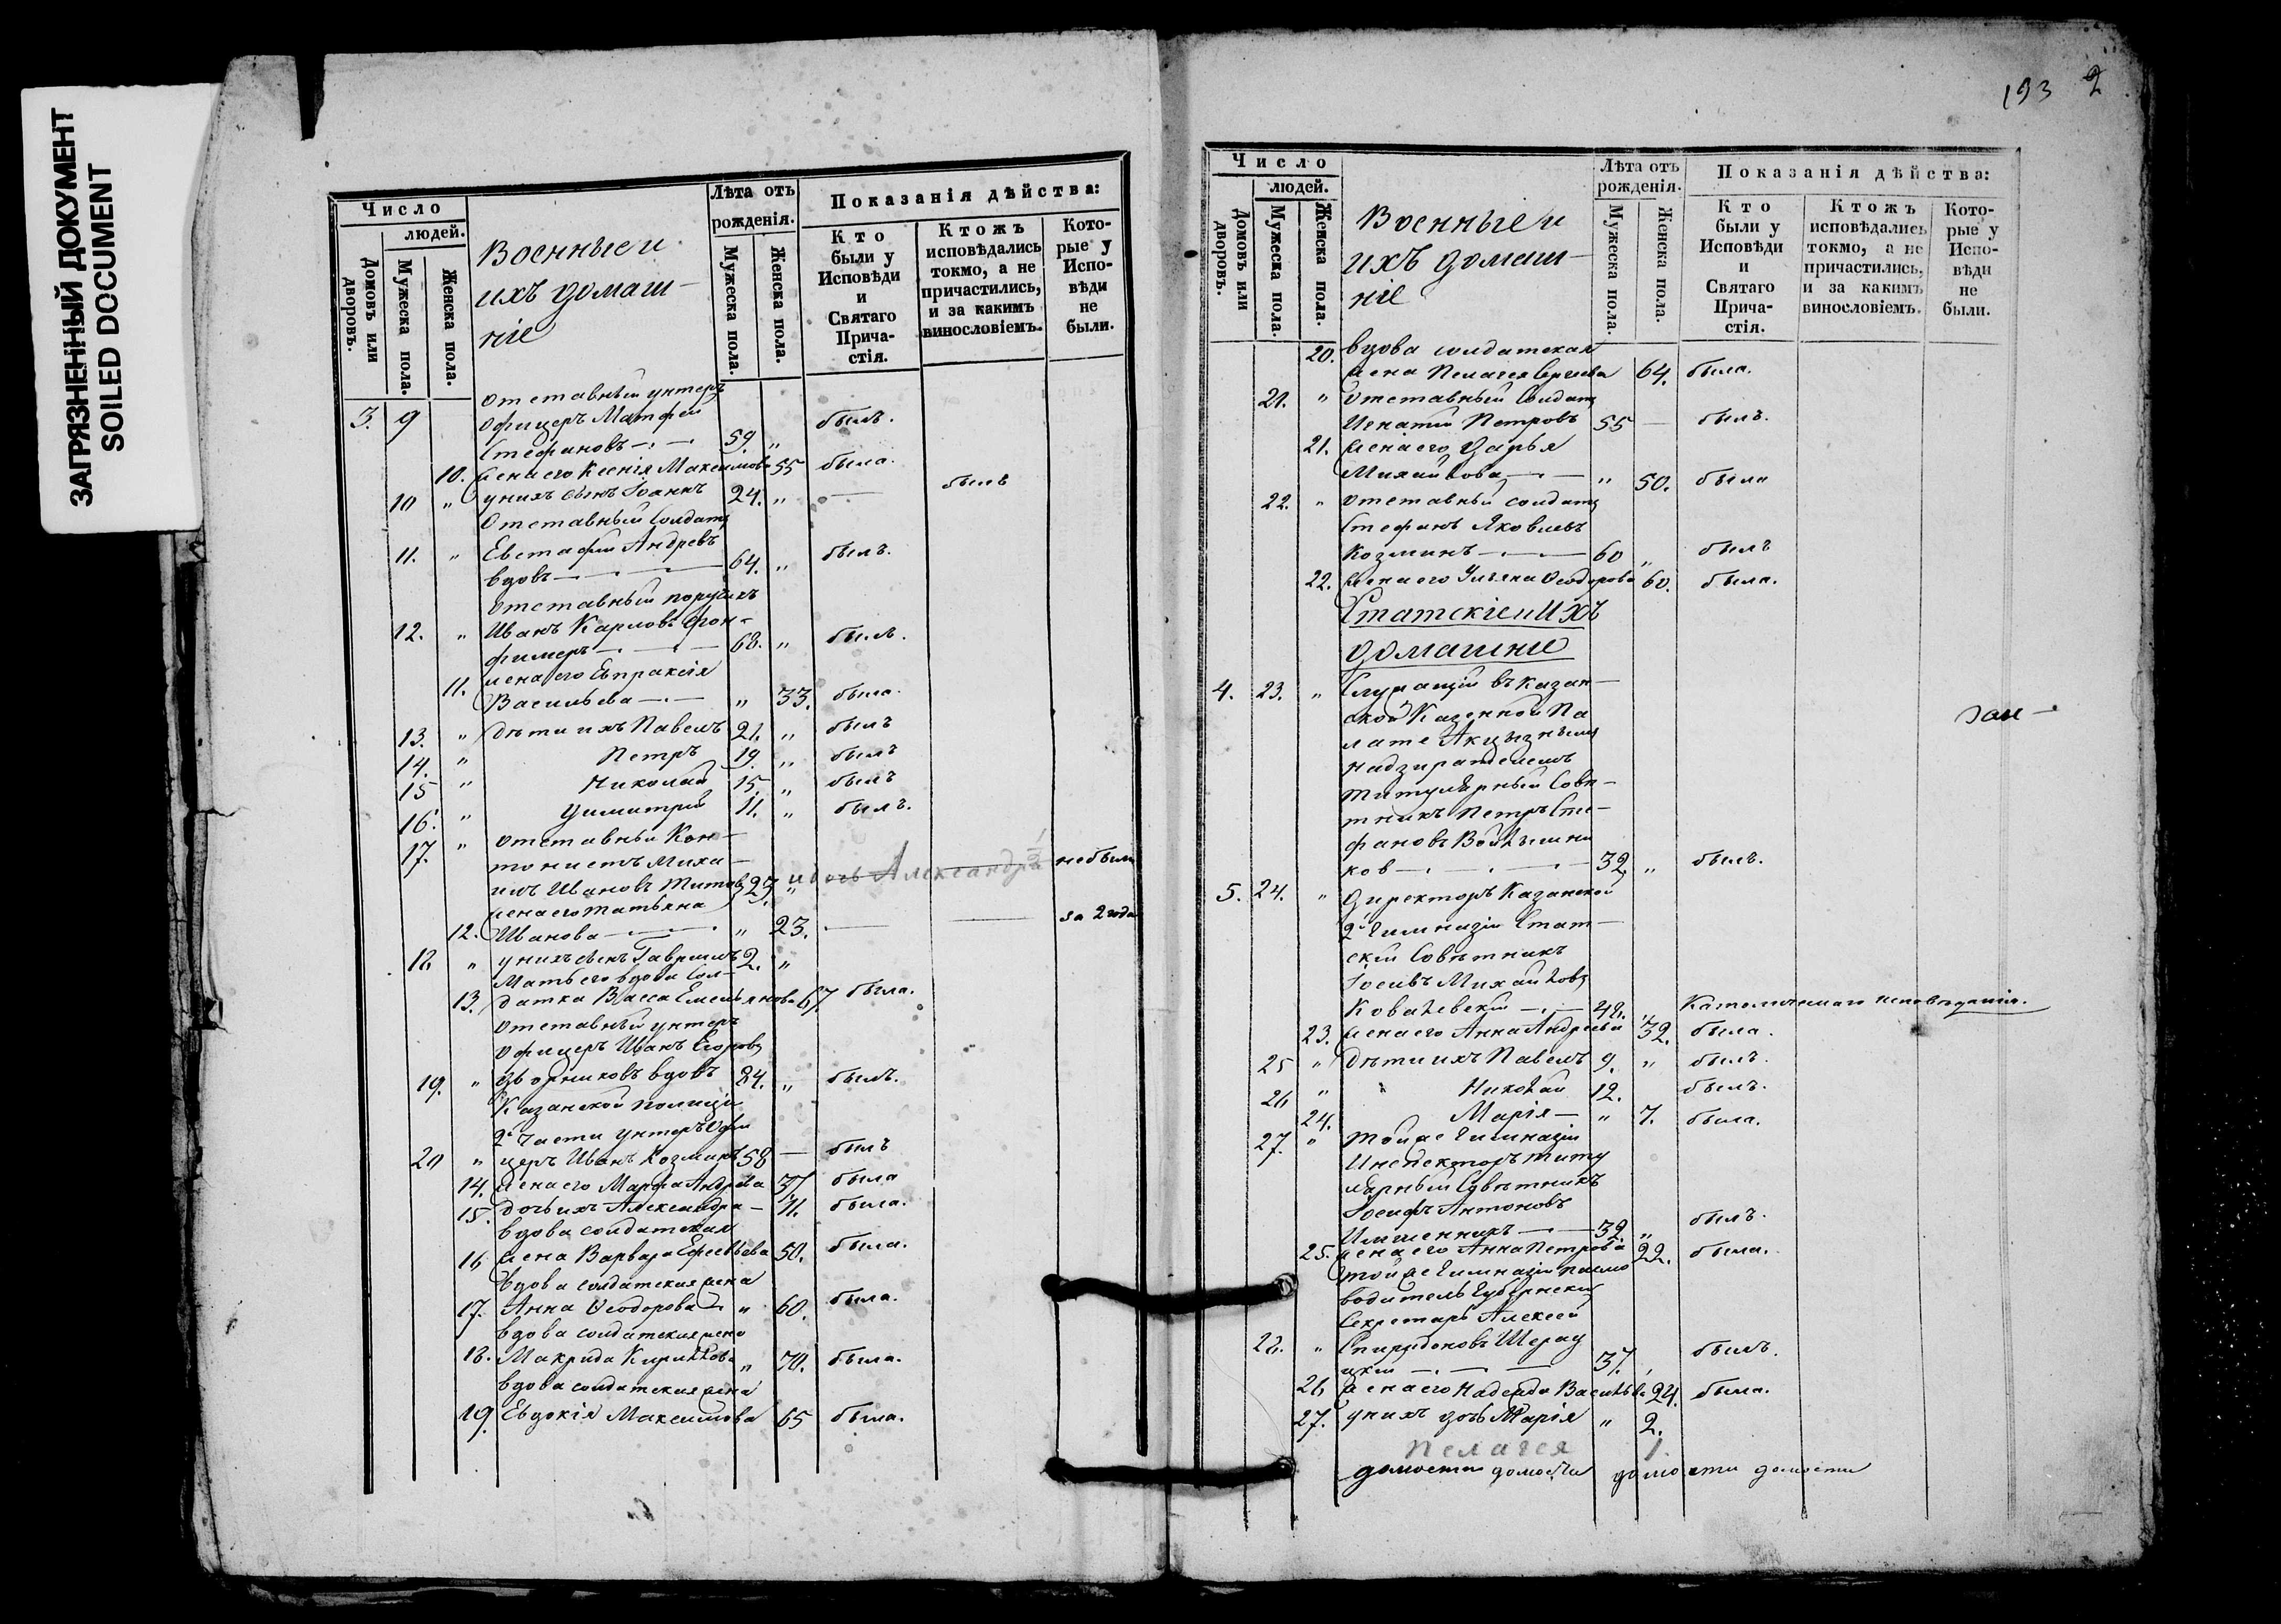 ЗАГРЯЗНЕННЫЙ ДОКУМЕНТ
SOILED DOCUMENT
Число
людей.
Домовъ или дворовъ.
Мужеска пола.
Женска пола.
Военные и
ихъ домаш-
ніе
Лѣта отъ
рожденія.
Мужеска пола.
Женска пола.
Показанія дѣйства:
Кто
были у
Исповѣди
и
Святаго
Прича-
стія.
Ктожъ
исповѣдались
токмо, а не
причастились,
и за какимъ
винословіемъ.
Кото-
рые у
Испо-
вѣди
не
были.
Отставный унтеръ
3. 9 офицеръ Матфей былъ.
Стефановъ 59 "
10. жена его Ксенія Максимова 55 была.
10 " у нихъ сынъ Іоаннъ 24. " — былъ
Отставный солдатъ
11. " Евстафій Андреевъ былъ.
вдовъ 64. "
Отставный поручикъ
12. " Иванъ Карловъ Фон- былъ.
68. "
11. жена его Евпраксія
Васильева " 33. была.
13. " дѣти ихъ Павелъ 21. " былъ
14. " Петръ 19. " былъ
15 " Николай 15. " былъ
16. " Димитрій 11. " былъ.
17. " отставный Кан-
тонистъ Миха-
илъ Ивановъ Титовъ 25. " и дочь Александра не были
жена его Татьяна
12. Иванова " 23. — за 2 года
18 " у нихъ сынъ Гавриилъ 2. "
Мать его вдова Сол-
13. датка Васса Емельянова 67. была.
Отставный унтеръ
офицеръ Иванъ Егоровъ
19. " Дворниковъ вдовъ 84. " былъ.
Казанской полиціи
2й части унтеръ офи
20 " церъ Иванъ Козминъ 58 — былъ
14. жена его Марфа Андреева 37 была
15. дочь ихъ Александра — 11. была.
вдова солдатская
16 жена Варвара Ефесевьева 50. была.
вдова солдатская жена
17. Анна Ѳеодорова " 60. была.
вдова солдатская жена
18. Макрида Кириллова " 70. была.
вдова солдатская жена
19. Евдокія Максимова 65 была.
193 2
Число
людей.
Домовъ или дворовъ.
Мужеска пола.
Женска пола.
Военные и
ихъ домаш-
ніе
Лѣта отъ
рожденія.
Мужеска пола.
Женска пола.
Показанія дѣйства:
Кто
были у
Исповѣди
и
Святаго
Прича-
стія.
Ктожъ
исповѣдались
токмо, а не
причастились,
и за какимъ
винословіемъ.
Кото-
рые у
Испо-
вѣди
не
были.
20. вдова солдатская
жена Пелагея Сергеева 64. была.
21. " Отставный солдатъ
Игнатій Петровъ 55 — былъ.
21. жена его Дарья
Михайлова " 50. была
22. " Отставный солдатъ
Стефанъ Яковлевъ
Козминъ 60 " былъ
22. жена его Ульяна Ѳеодорова 60. была.
Статскіе и ихъ
домашніе
4. 23. " Служащій въ Казан-
ской Казенной Па
лате Акцызнымъ
надзирателемъ
Титулярный Совѣ-
тникъ Петръ Сте-
фановъ
ковъ 32. " былъ.
5. 24. " Директоръ Казанской
2й Гимназіи Стат-
скій Совѣтникъ
Іосифъ Михайловъ
Ковалевскій 48. " Католическаго исповѣданія.
23. жена его Анна Андреева 32. была.
25 " дѣти ихъ Павелъ 9. " былъ.
26 " Николай 12. былъ.
24. Марія — " 7. была.
27. " Той же Гимназіи
Инспекторъ Титу
лярный Совѣтникъ
Іосифъ Антоновъ
32. " былъ.
25. жена его Анна Петрова 22. была.
той же Гимназіи письмо
водитель Губернскій
Секретарь Алексей
28. " Спиридоновъ
37. былъ.
26 жена его Надежда Васильева 24. была.
27. у нихъ дочь Марія " 2.
Пелагея 1.